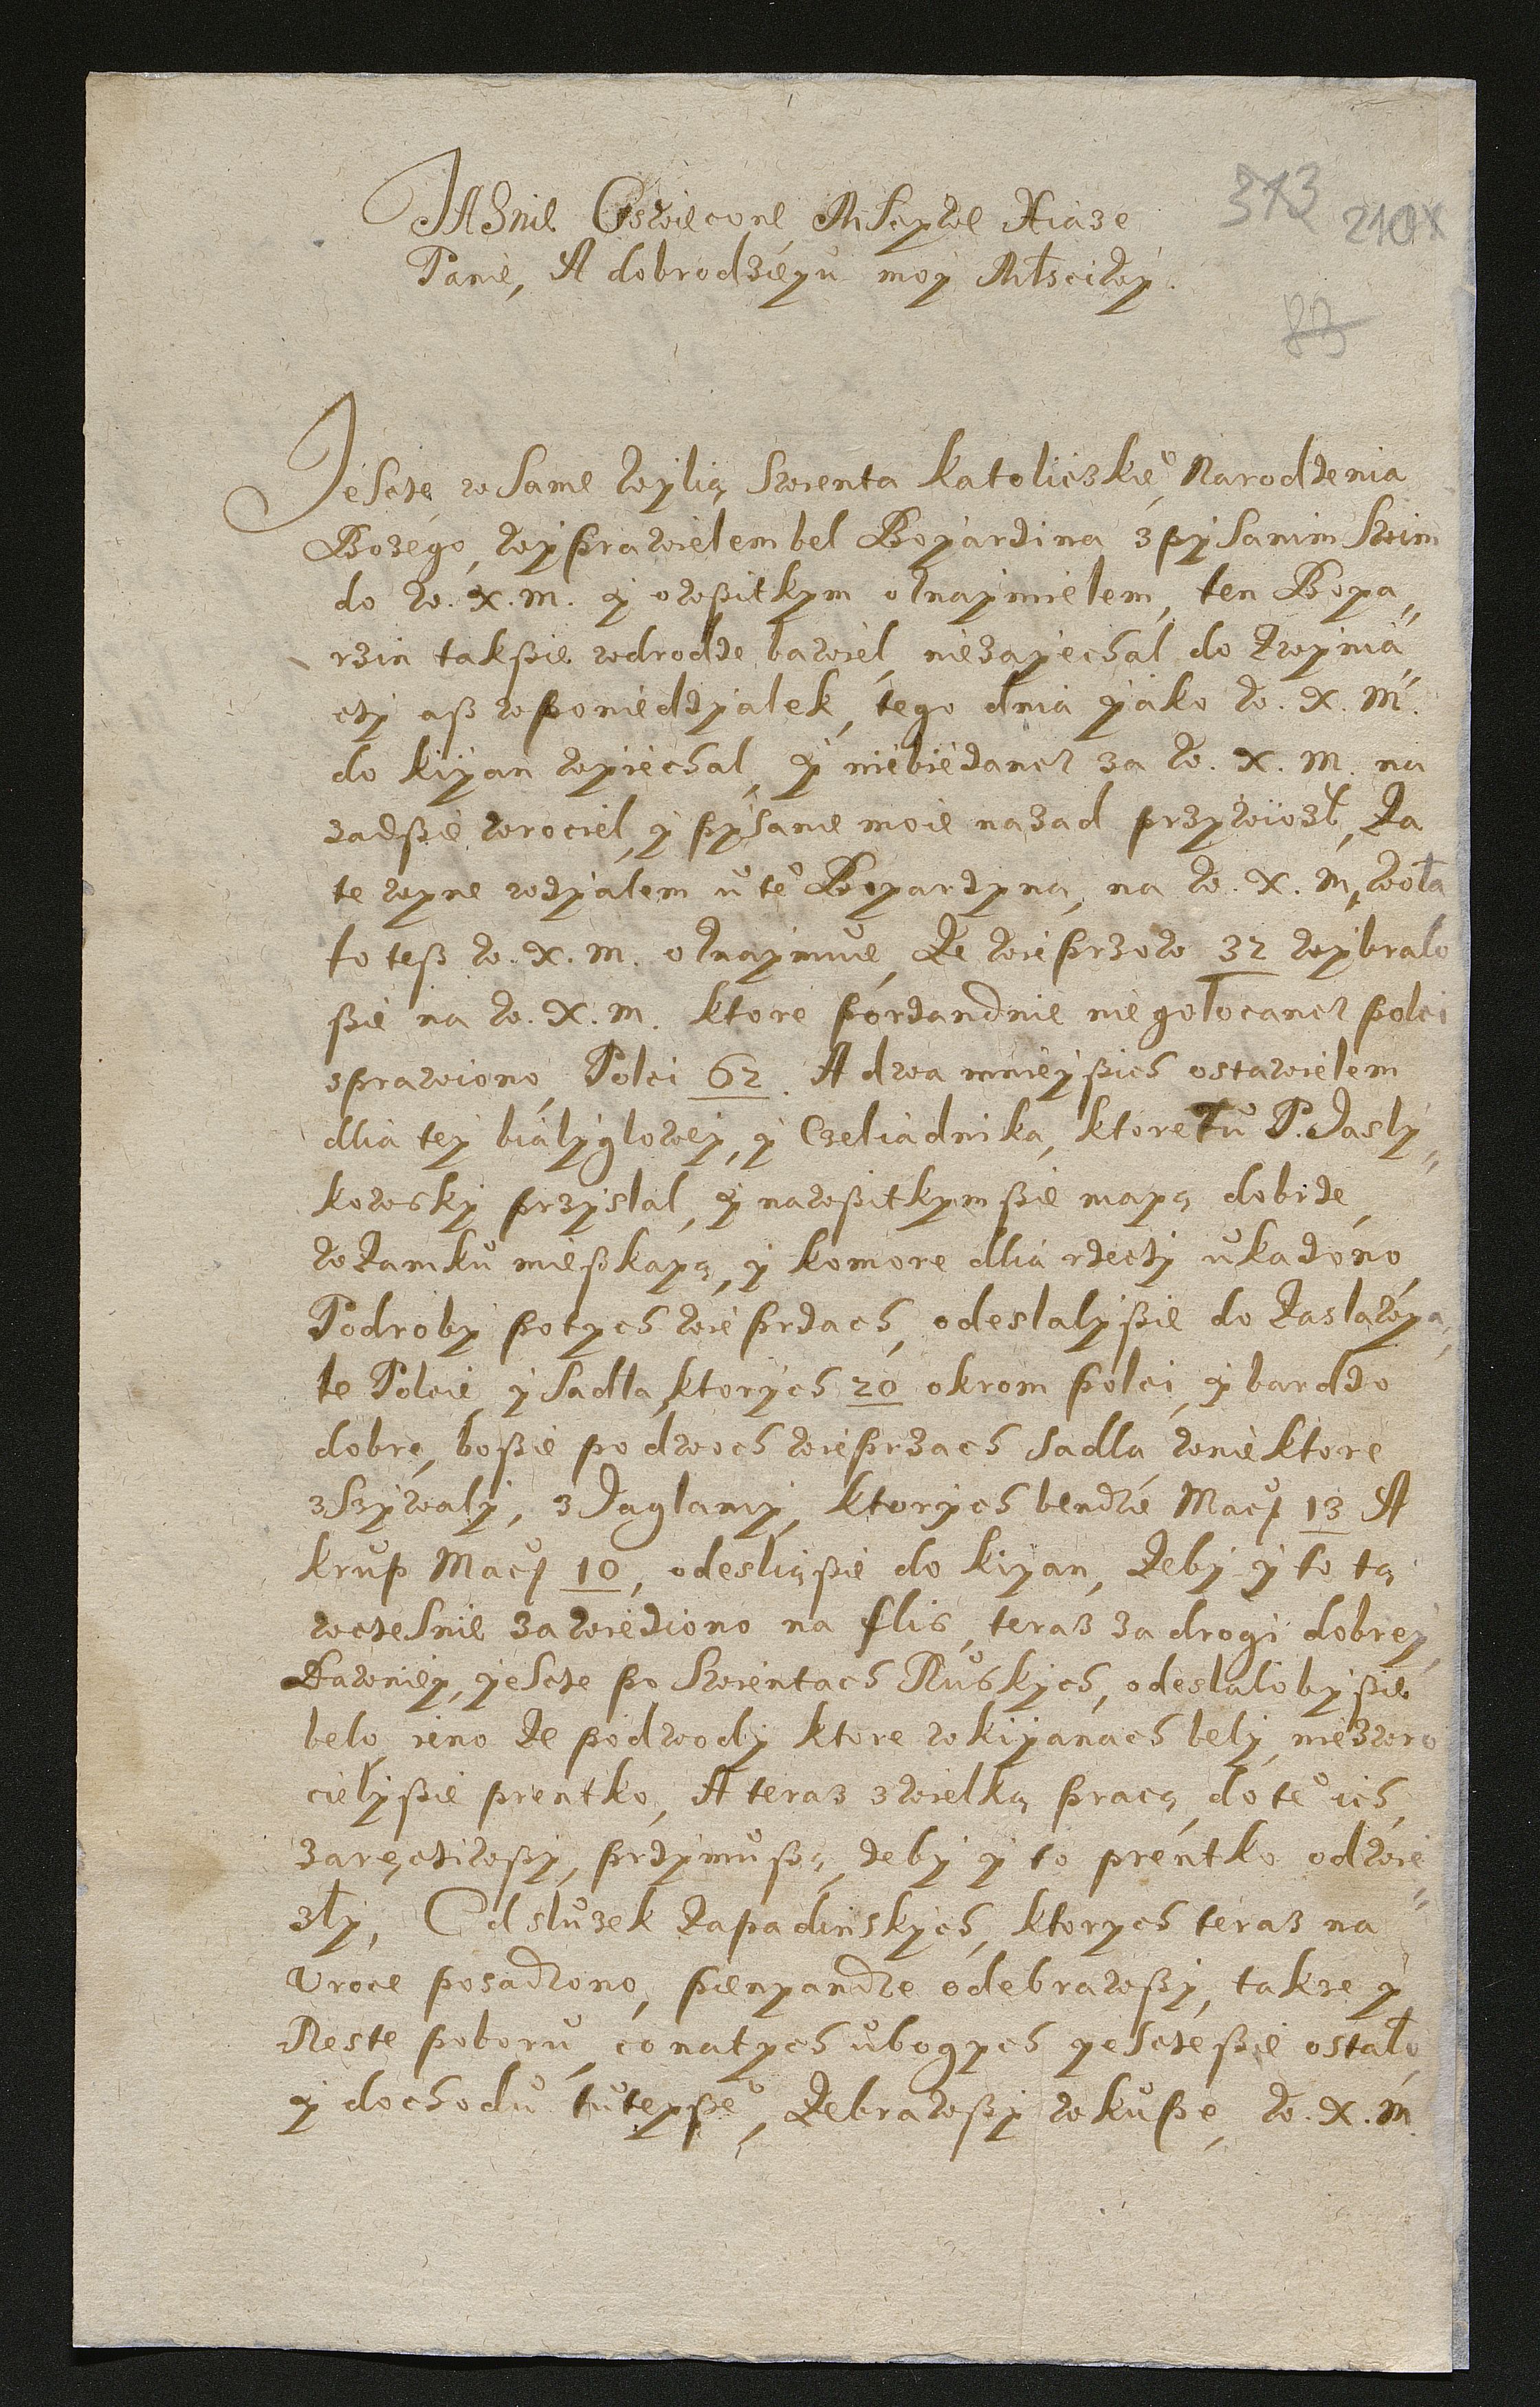 JASnie Oswiecone MSczwe Xiaze
373 210
Panie, A dobrodzieyu moy Młsciwy.
83
Jescze w same wylią Swienta katolickie° Narodzenia
Bozego, wyprawielem bel Boyarzina z pysanim Swim
do W. X. M. y owszitkym oznaymielem, ten Boya„
rzin taksie wdrodze bawiel, niezayechal do Zwynia„
czy asz wponiedzyalek, tego dnia yako W. X. M.
do kiyan wyiechal, y niebiedancz za W. X. M. na
zadsie wrociel, y pysanie moie nazad przywiozł, Za
te wyne wzyalem u te° Boyarzyna, na W. X. M, woła
to tesz W. X. M. oznaymue, Ze wieprzow 32 wybralo
sie na W. X. M. ktore porzandnie niegołocancz polci
sprawiono, Polci 62. A dwa mnieysich ostawielem
dlia tey bialyglowy, y Czeliadnika, ktore tu P. Jasly„
kowsky przyslal, y nawszitkym sie mayą dobrze,
wZamku mieszkayą, y komore dlia rzeczy ukazono
Podroby potych wieprzach, odeslalysie do Zaslawya„
te Polcie y Sadła, ktorych 20 okrom polci, y bardzo
dobre, bosie po dwoch wieprzach sadla wniektore
zSzywaly, z Jaglamy, ktorych bendzie Macy 13 A
krup Macy 10, odesliąsie do kiyan, Zeby y to tą
wczesnie zawiedziono na flis, teraz za drogi dobrey,
Dawniey, yescze po Swientach Ruskych, odeslalobysie
belo, ieno Ze podwody ktore wkiyanach bely, niezwro
cielysie prentko, A teraz zwielką pracą, do te° ich,
zaręcziwszy, przymuszą, zeby y to prentko odwie„
zły, Od sluzek Zapadinskych, ktorych teraz na
Uroce posadzono, pienyandze odebrawszy, takze y
Reste poboru, conatych ubogych yesczesie ostało,
y dochodu tuteysze°, Zebrawszy wkupe, W. X. M.